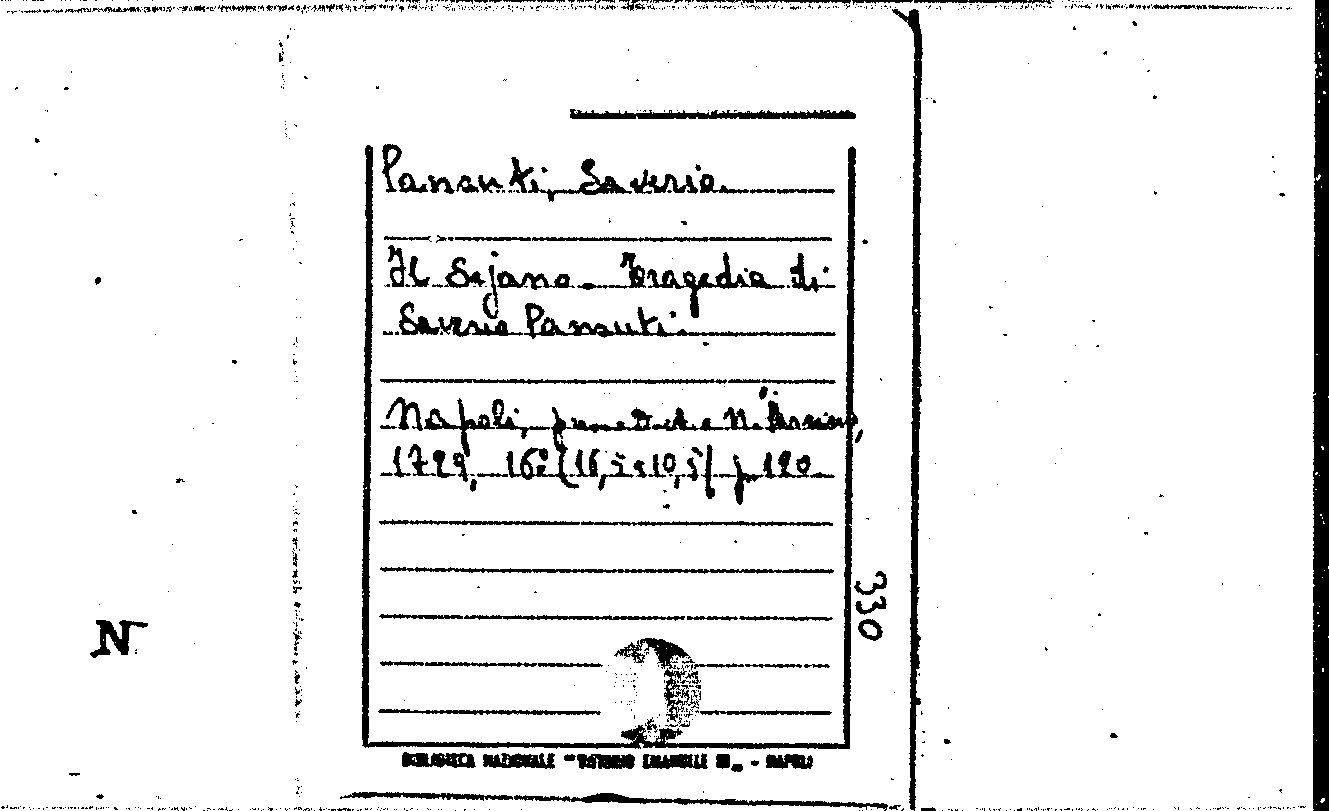 Pansuti, Saverio.
Il Sejano. Tragedia di
Saverio Pansuti.
Napoli, presso D. Ant. e N. Parrino,
1729, 16° (16,5x10,5) p. 120.
330
N
BIBLIOTECA NAZIONALE "VITTORIO EMANUELE III" - NAPOLI